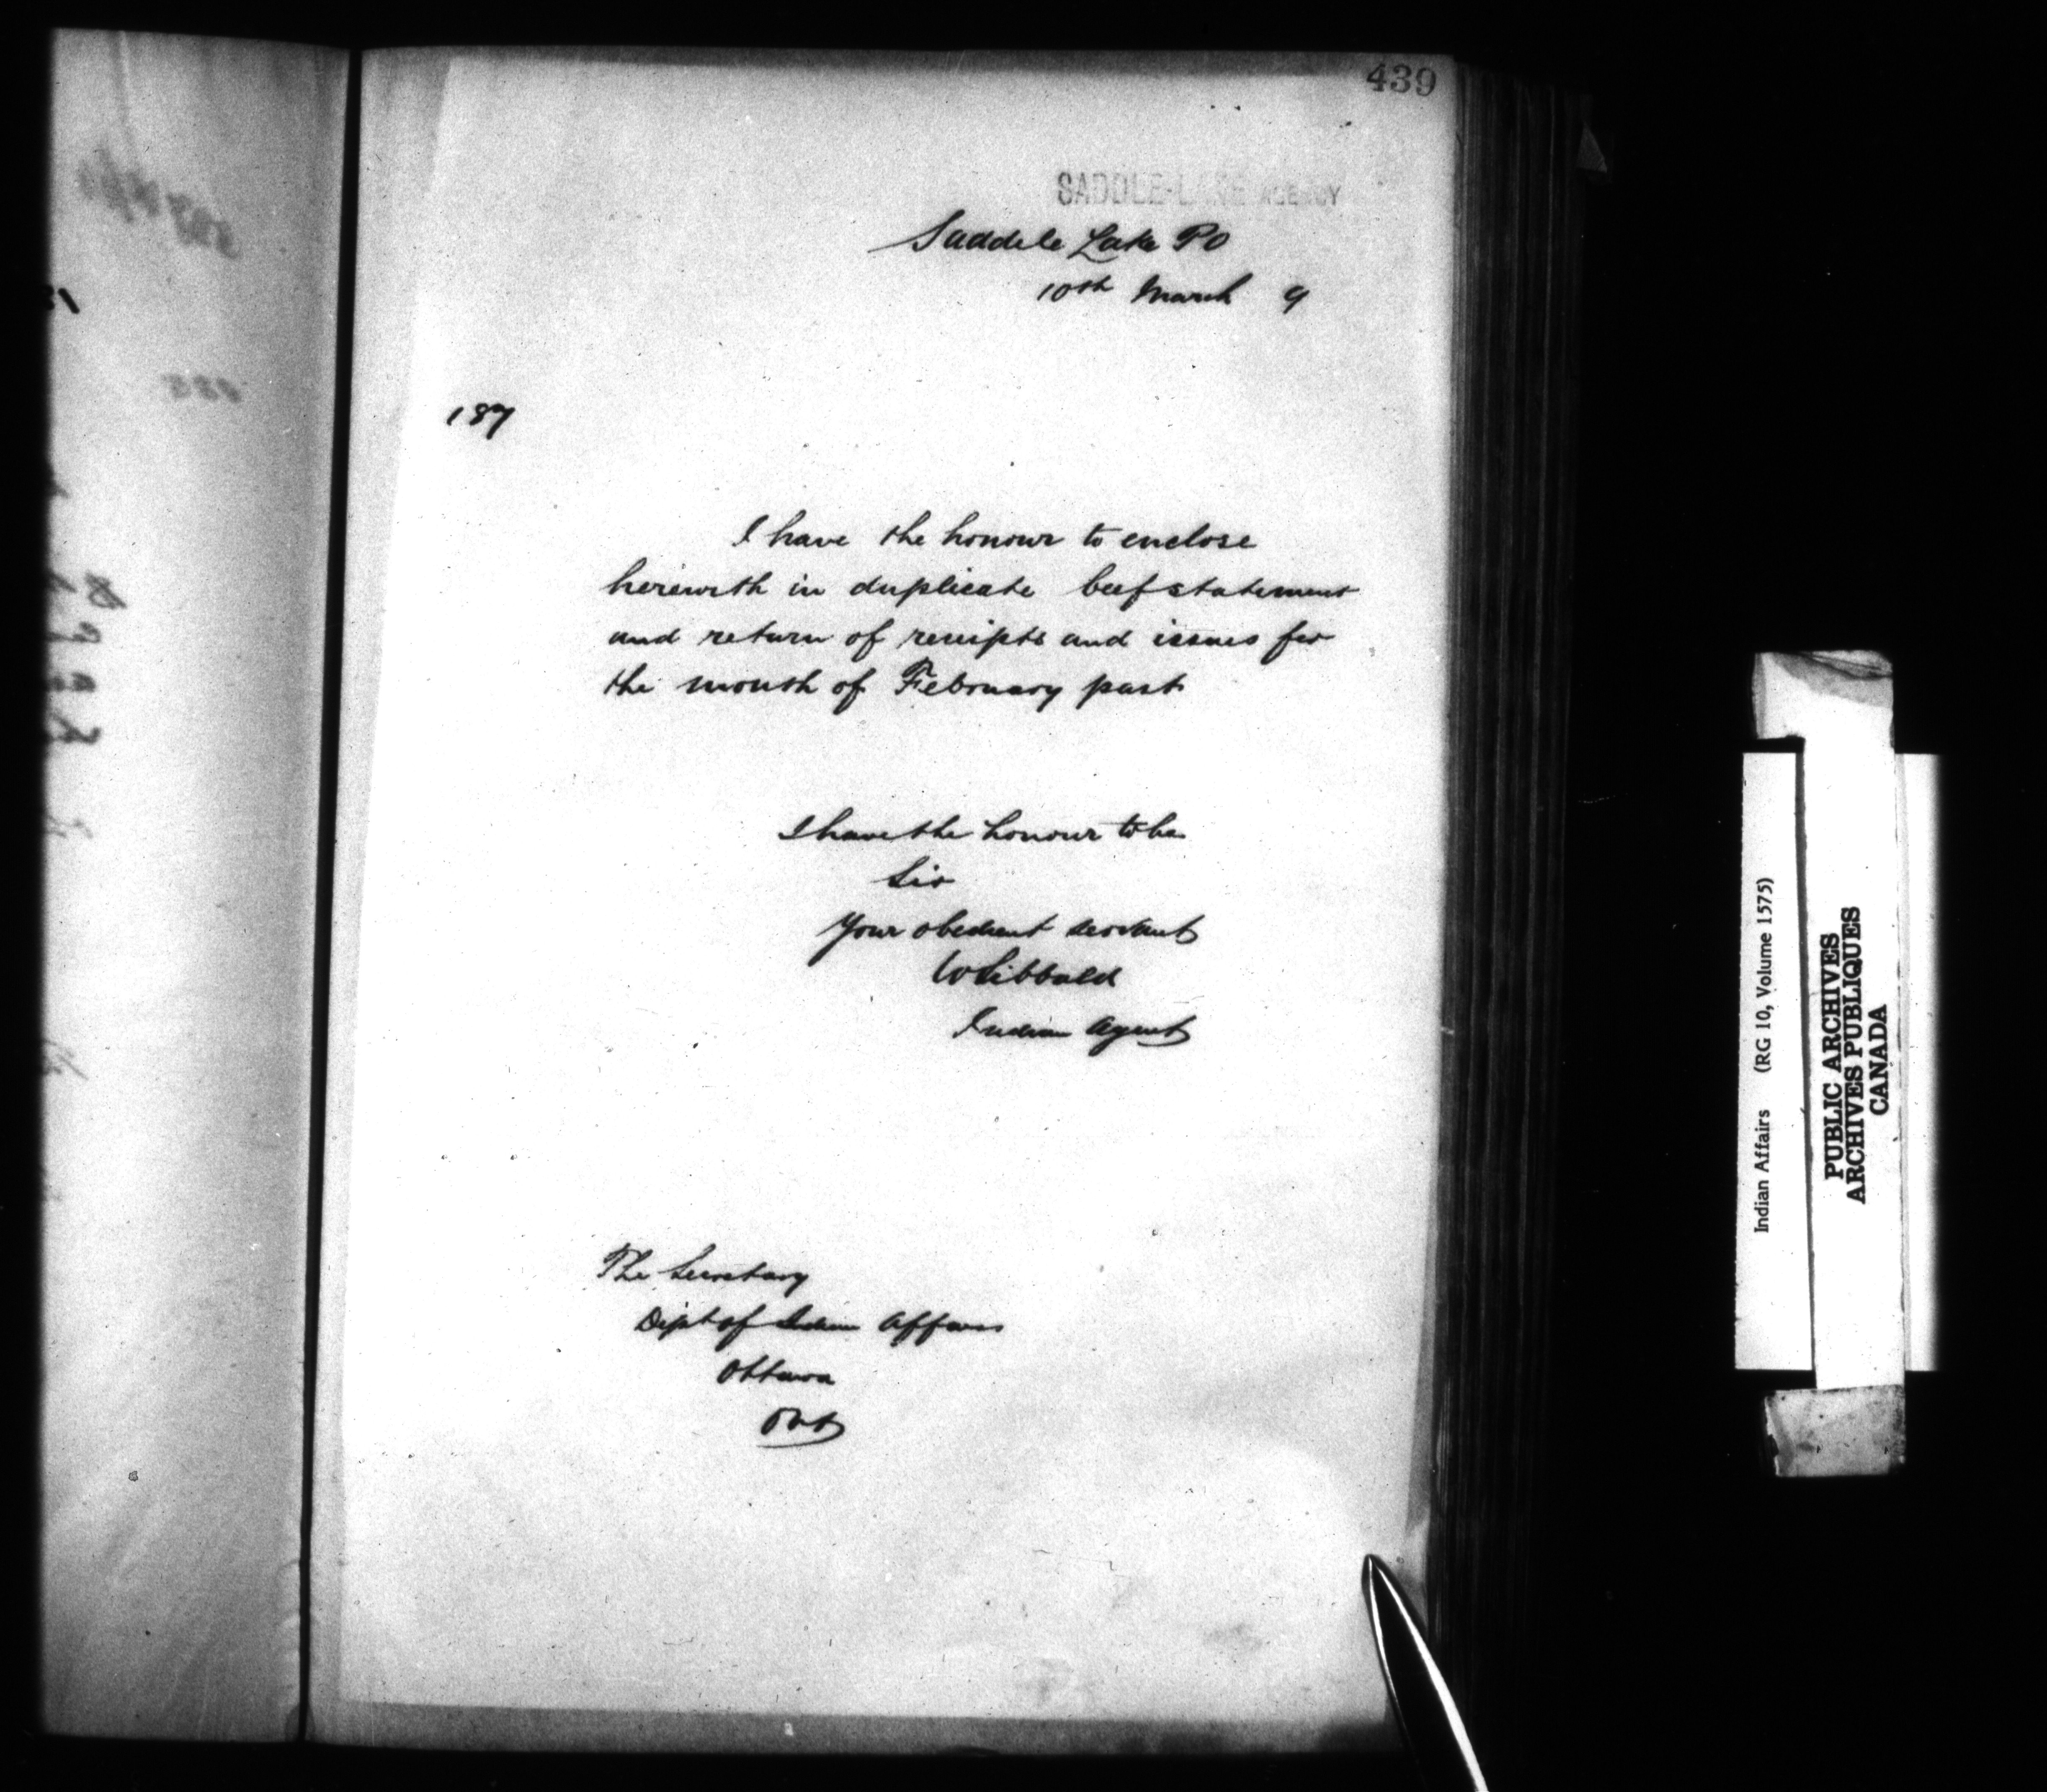 439
SADDLE-LAKE AGENCY
Saddle Lake PO
10th March 9
187
I have the honour to enclose
herewith in duplicate beef statement
and return of receipts and issues for
the month of February past
I have the honour to be
Sir
Your obedient servant
W Sibbald
Indian Agent
The Secretary
Dept of Indian Affairs
Ottawa
Ont
Indian Affairs (RG 10, Volume 1575)
PUBLIC ARCHIVES
ARCHIVES PUBLIQUES
CANADA